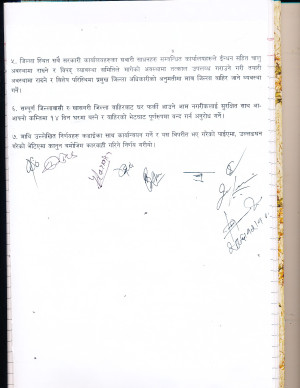 ५. जिल्ला स्थित सबै सरकारी कार्यालयहरूका सवारी साधनहरू सम्बन्धित कार्यालयहरूले ईन्धन सहित चालु
अवस्थामा राख्ने र विपद् व्यवस्थापन समितिले मागेको अवस्थामा तत्काल उपलब्ध गराउने गरी तयारी
अवस्थामा राख्ने र विशेष परिस्थितिमा प्रमुख जिल्ला अधिकारीको अनुमतीमा मात्र जिल्ला बाहिर जाने व्यवस्था
गर्ने।
६. सम्पूर्ण जिल्लावासी र खासगरी जिल्ला बाहिरबाट घर फर्की आउने आम नगरीकलाई सुरक्षित साथ आ-
आफ्नो घरमित्र १४ दिन घरमा बस्ने र बाहिरको भेटघाट पूर्णरूपमा बन्द गर्न अनुरोध गर्ने।
७. माथि उल्लेखित निर्णयहरू कडाईका साथ कार्यान्वयन गर्ने र यस विपरीत भए गरेको पाईएमा, उल्लङ्घन
गरेको भेटिएमा कानून बमोजिम कारवाही गरिने निर्णय गरियो।